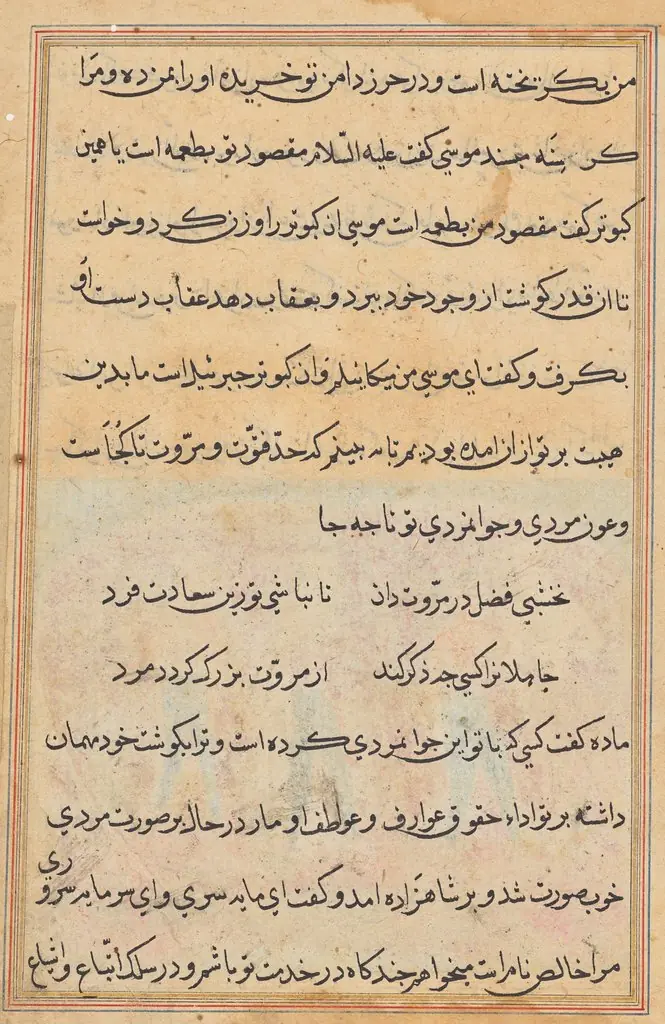 من بکریخته است و در حرز دامن تو خریده او را بمن ده و مرا
کرسنه مبسند موسی کفت علیه السّلام مقصود تو بطعمه است یا همین
کبوتر کفت مقصود من بطعمه است موسی ان کبوتر را وزن کرد و خواست
تا ان قدر کوشت از وجود خود ببرد و بعقاب دهد عقاب دست او
بکرفت و کفت ای موسی من میکاییلم و ان کبوتر جبرئیل است ما بدین
هیبت بر تو از ان امده بودیم تا به بینم که حدّ فتوّت و مروّت تا کجاست
و عون مردی و جوانمردی تو تا جه جا
نخشبی فضل در مروّت دان تا نباشی تو زین سعادت فرد
جاملانرا کسی جه ذکر کند از مروّت بزرک کردد مرد
ماده کفت کسی که با تو این جوانمردی کرده است و ترا بکوشت خود مهمان
داشته بر تو اداء حقوق عوارف و عواطف او مار در حال بر صورت مردی
خوب صورت شد و بر شاهزاده امد و کفت ای مایه سری و ای سرمایه سروری
مرا خالص نام است میخواهم جند کاه در خدمت تو باشم و در سلک اتّباع و اشیاع